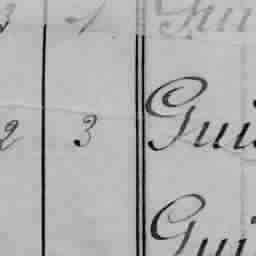 3 1 Gui
2 3 Guis
Gui